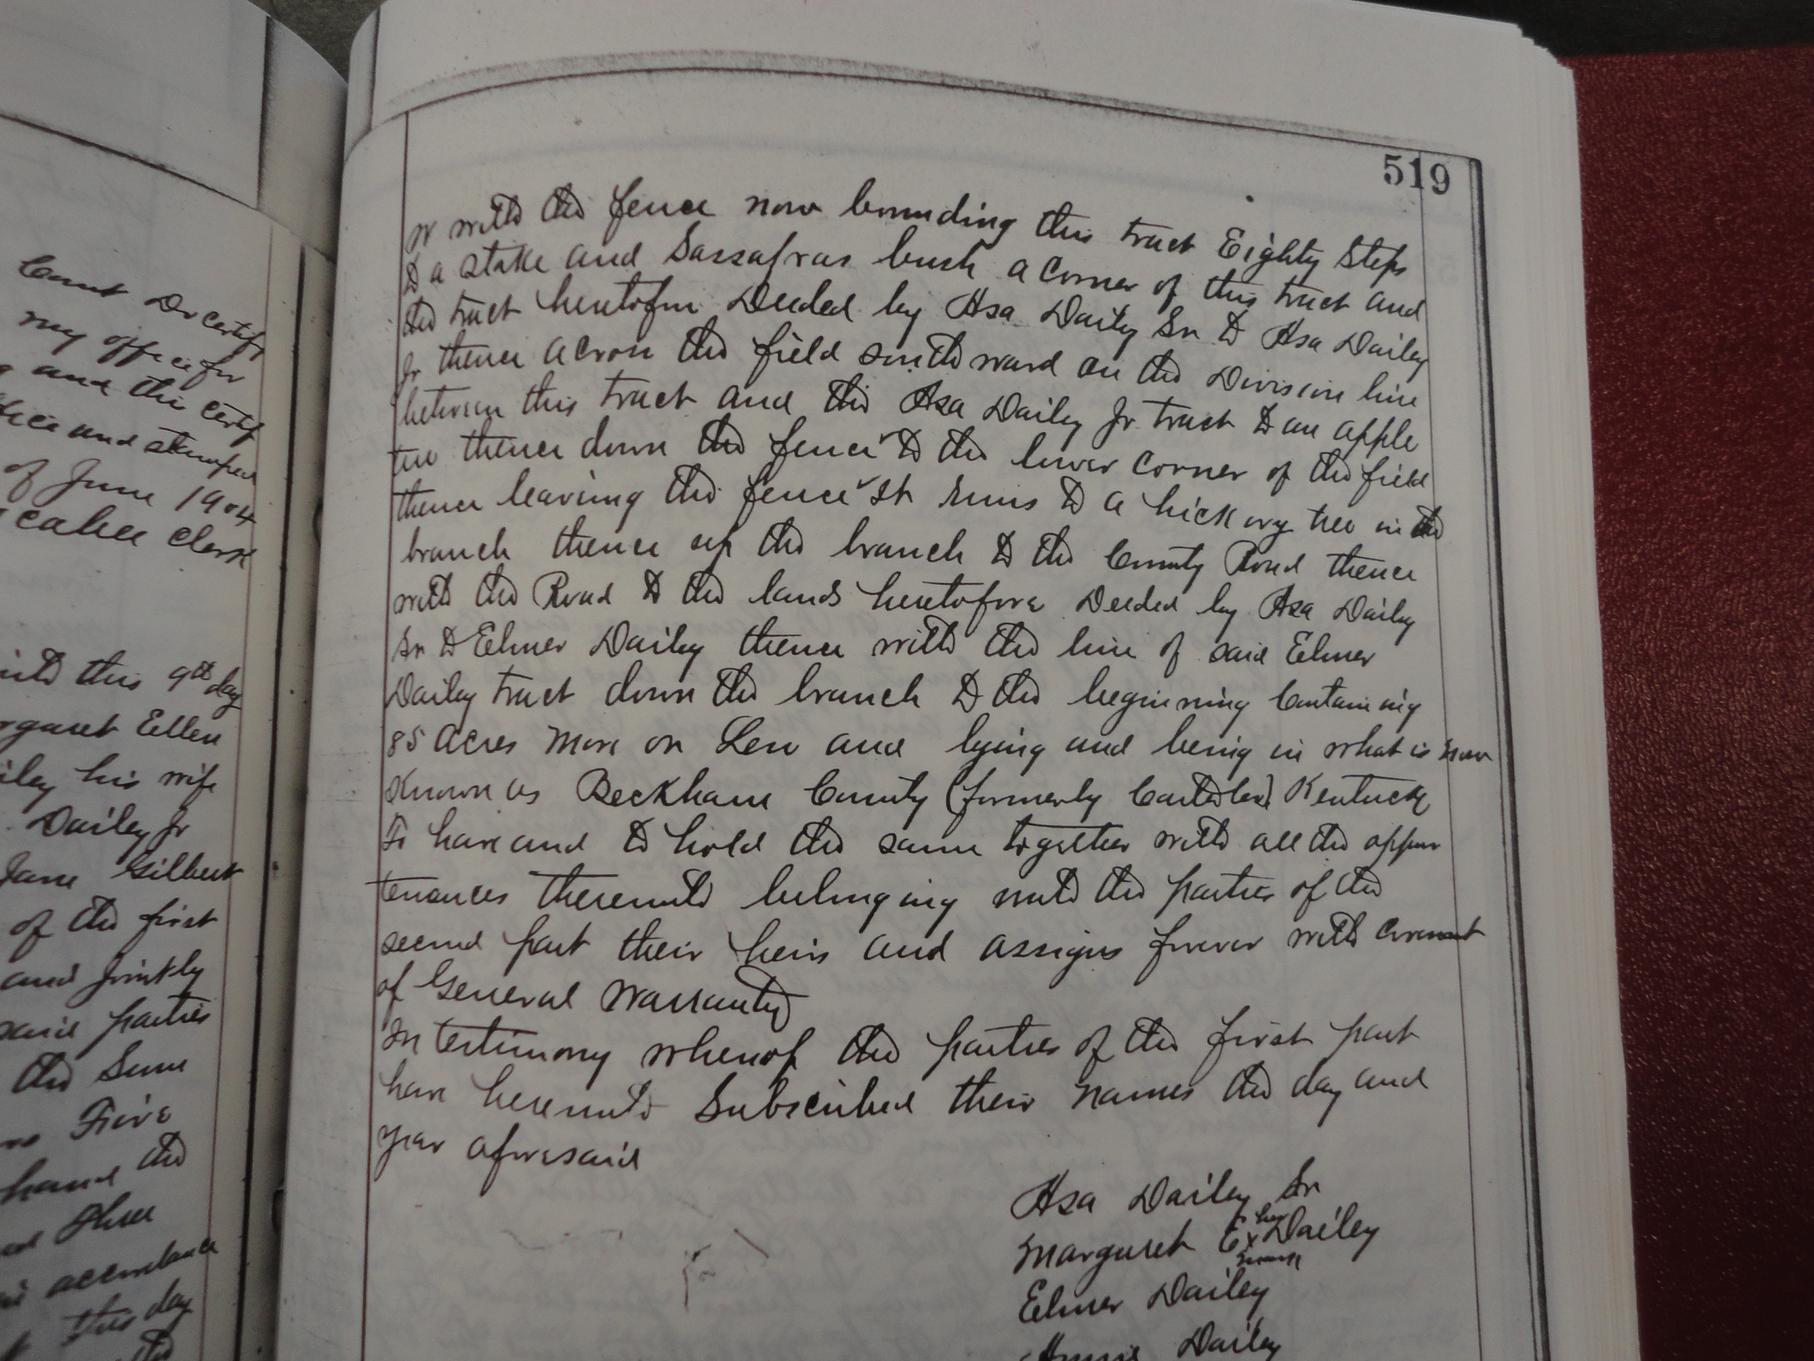 Court Do certify
my office for
and the certif
fice and stamped
of June 1904
Clerk
this 9th day
rgaret Ellen
iley his wife
Dailey Jr
Jane Gilbert
of the first
and jointly
said parties
the Same
Five
hand the
and Three
accordance
this day
519
W with the fence now bounding this tract Eighty Steps
to a stake and Sassafras bush a corner of this tract and
the tract heretofor Deeded by Asa Dailey Sr to Asa Dailey
Jr thence across the field southward on the Division line
between this tract and the Asa Dailey Jr tract to an apple
tree thence down the fence to the lower corner of the field
thence leaving the fence it runs to a hickory tree in the
branch thence up the branch to the County Road thence
with the Road to the lands heretofore Deeded by Asa Dailey
Sr to Elmer Dailey thence with the line of said Elmer
Dailey tract down the branch to the beginning Containing
85 Acres More or Less and lying and being in what is now
Known as Beckham County (formerly Carter) Kentucky
To have and to hold the same together with all the appur
tenances thereunto belonging unto the parties of the
second part their heirs and assigns forever with covenant
of General Warranty
In testimony whereof the parties of the first part
have hereunto Subscribed their names the day and
year aforesaid
Asa Dailey Sr
Margaret E her x mark Dailey
Elmer Dailey
Annie Dailey